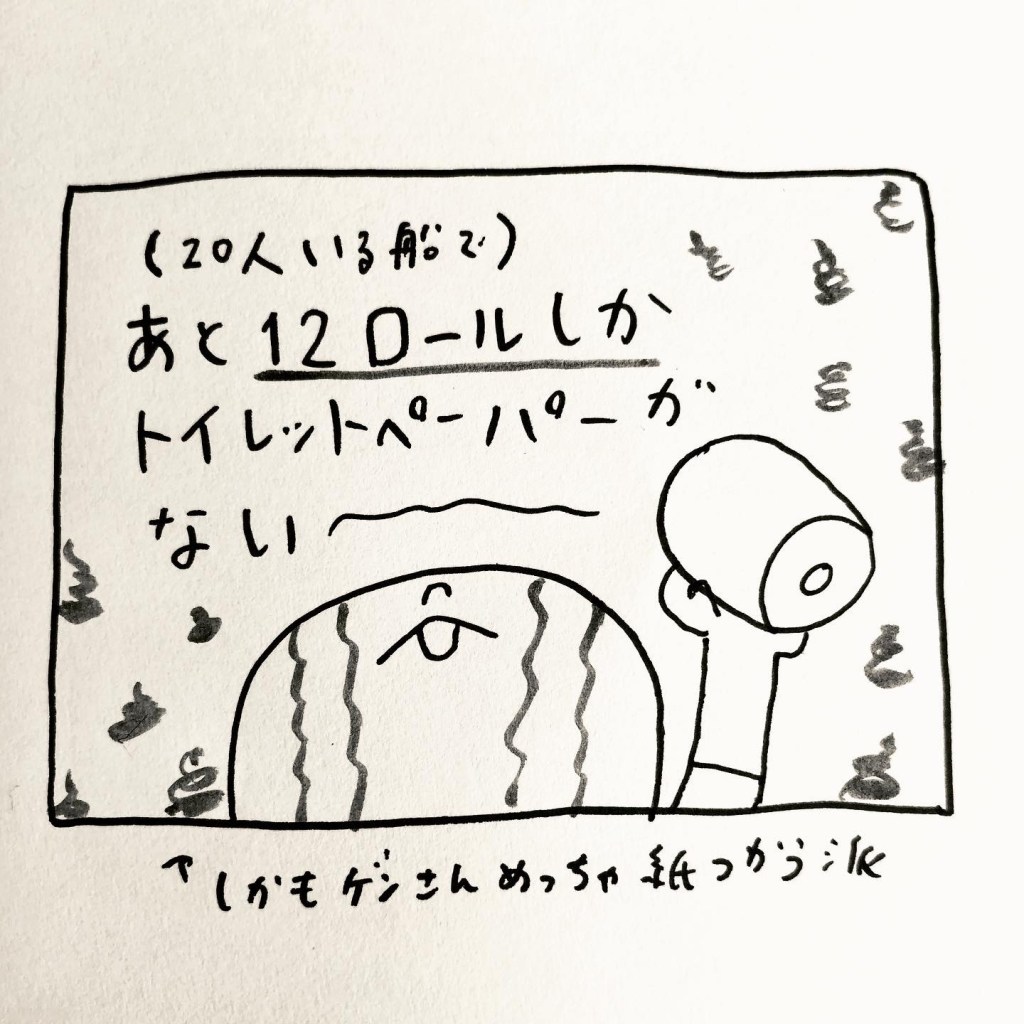 (20人いる船で)
あと12ロールしか
トイレットペーパーが
ない〜
↑しかもゲンさんめっちゃ紙つかう派